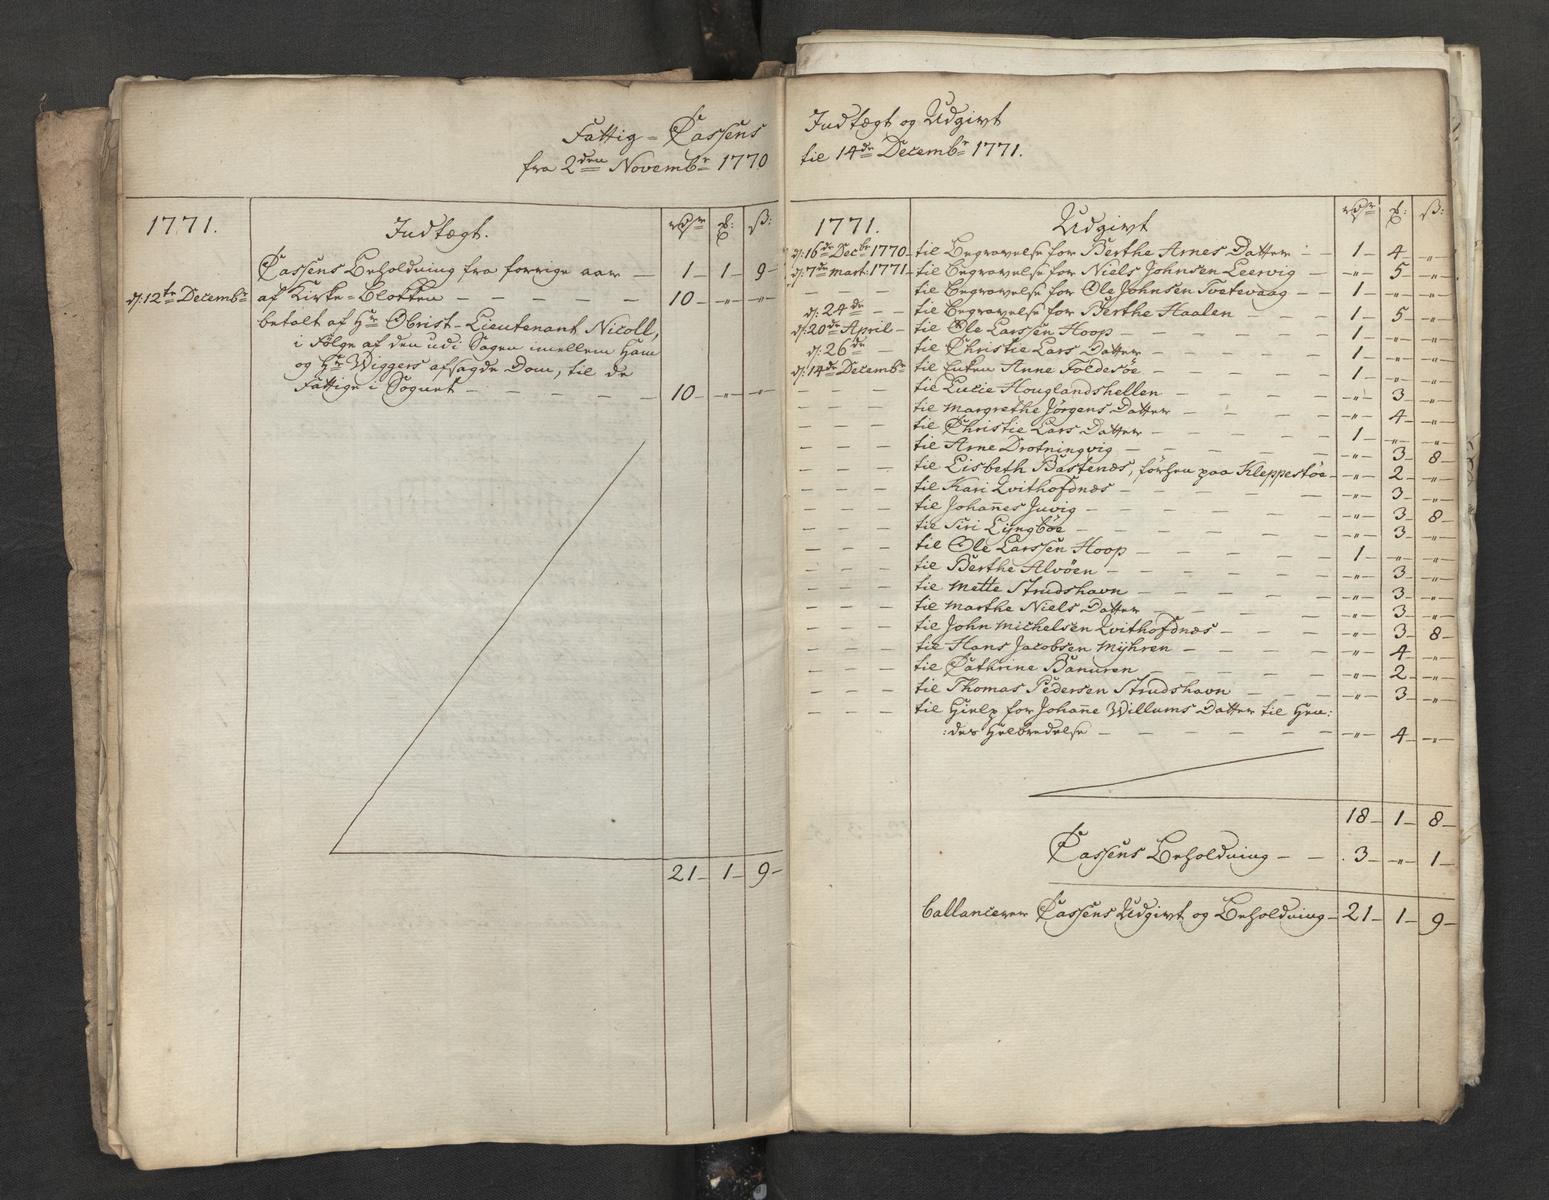 Fattig-Cassens
fra 2den Novembr 1770
1771. Indtægt. rdr ß:
Cassens Beholdning fra forrige aar — 1 — 1 — 9 —
d: 12te Decembr af Kirke-Blokken — — — — — 10 — " — " —
betalt af Hr Obrist-Lieutenant Nicoll,
i Følge af den udi Sagen imellem ham
og Hr Wiggers afsagde Dom, til de
Fattige i Sognet — — — — — 10 — " — " —
21 — 1 — 9 —
Indtægt og Udgivt
til 14de Decembr 1771.
1771. Udgivt rdr ß:
d: 16de Decbr 1770 — til Begravelse for Berthe Arnes Datter — — 1 — 4 — " —
d: 7de mart: 1771 — til Begravelse for Niels Johnsen Leervig — — " — 5 — " —
— — — til Begravelse for Ole Johnsen Tvetevaag — — 1 — " — " —
d: 24de — til Begravelse for Berthe Haalen — — 1 — 5 — " —
d: 20de April — til Ole Larssen Hoop — — — 1 — " — " —
d: 26de — til Christie Lars Datter — — — 1 — " — " —
d: 14de Decembr til Enken Anne Foldesøe — — — 1 — " — " —
— — — til Lucie Houglandshellen — — — " — 3 — " —
— — — til Margrethe Jørgens Datter — — — " — 4 — " —
— — — til Christie Lars Datter — — — 1 — " — " —
— — — til Arne Drotningvig — — — " — 3 — 8 —
— — — til Lisbeth Bastenæs, førhen paa Kleppestøe — " — 2 — " —
— — — til Kari Qvithofdnæs — — — " — 3 — " —
— — — til Johannes Juvig — — — " — 3 — 8 —
— — — til Siri Lyngbøe — — — " — 3 — " —
— — — til Ole Larssen Hoop — — — 1 — " — " —
— — — til Berthe Alvøen — — — " — 3 — " —
— — — til Mette Strudshavn — — — " — 3 — " —
— — — til Marthe Niels Datter — — — " — 3 — " —
— — — til John Michelsen Qvithofdnæs — — — " — 3 — 8 —
— — — til Hans Jacobsen Myhren — — — " — 4 — " —
— — — til Cathrine Banuren — — — " — 2 — " —
— — — til Thomas Pedersen Strudshavn — — — " — 3 — " —
— — — til Hielp for Johanne Willums Datter til Hen:
:des Helbredelse — — — " — 4 — " —
18 — 1 — 8 —
Cassens Beholdning — — 3 — " — 1 —
ballancerer Cassens Udgivt og Beholdning — 21 — 1 — 9 —